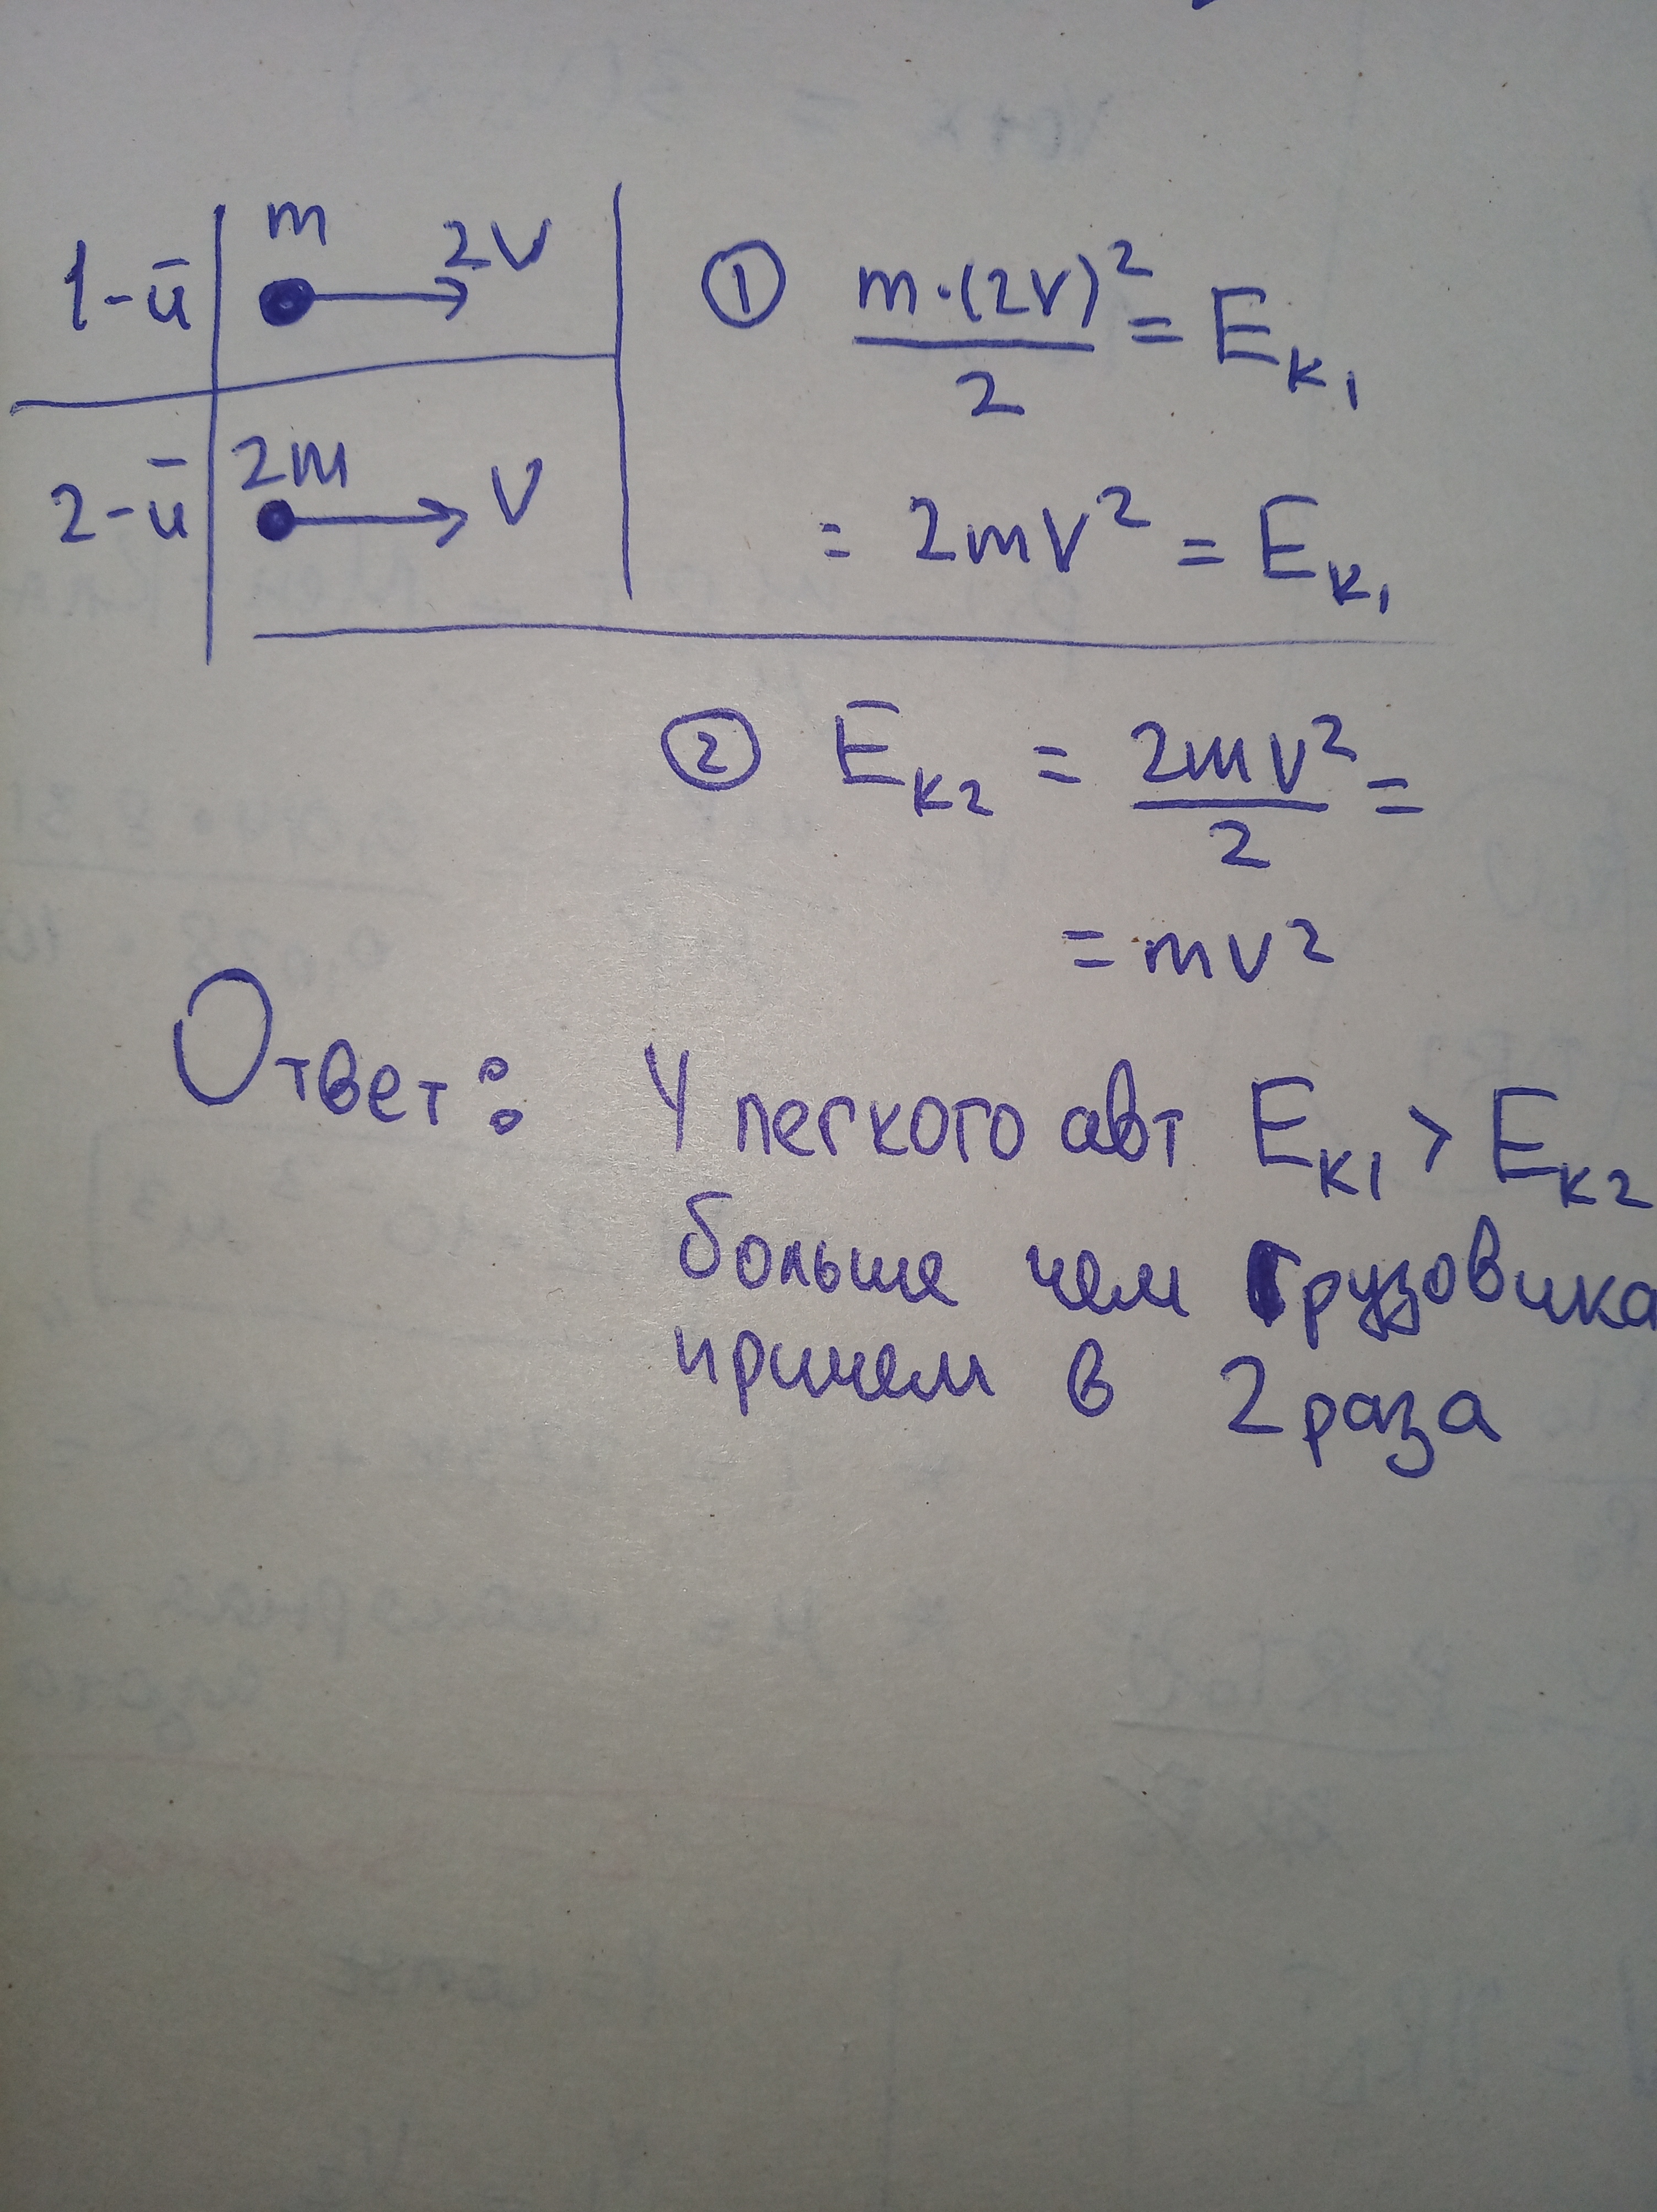 1-й m 2V
2-й 2m V
① m·(2V)²/2 = Eк₁
= 2mV² = Eк₁
② Eк₂ = 2mV²/2 =
= mV²
Ответ: У легкого авт Eк₁ > Eк₂
больше чем грузовика
причем в 2 раза